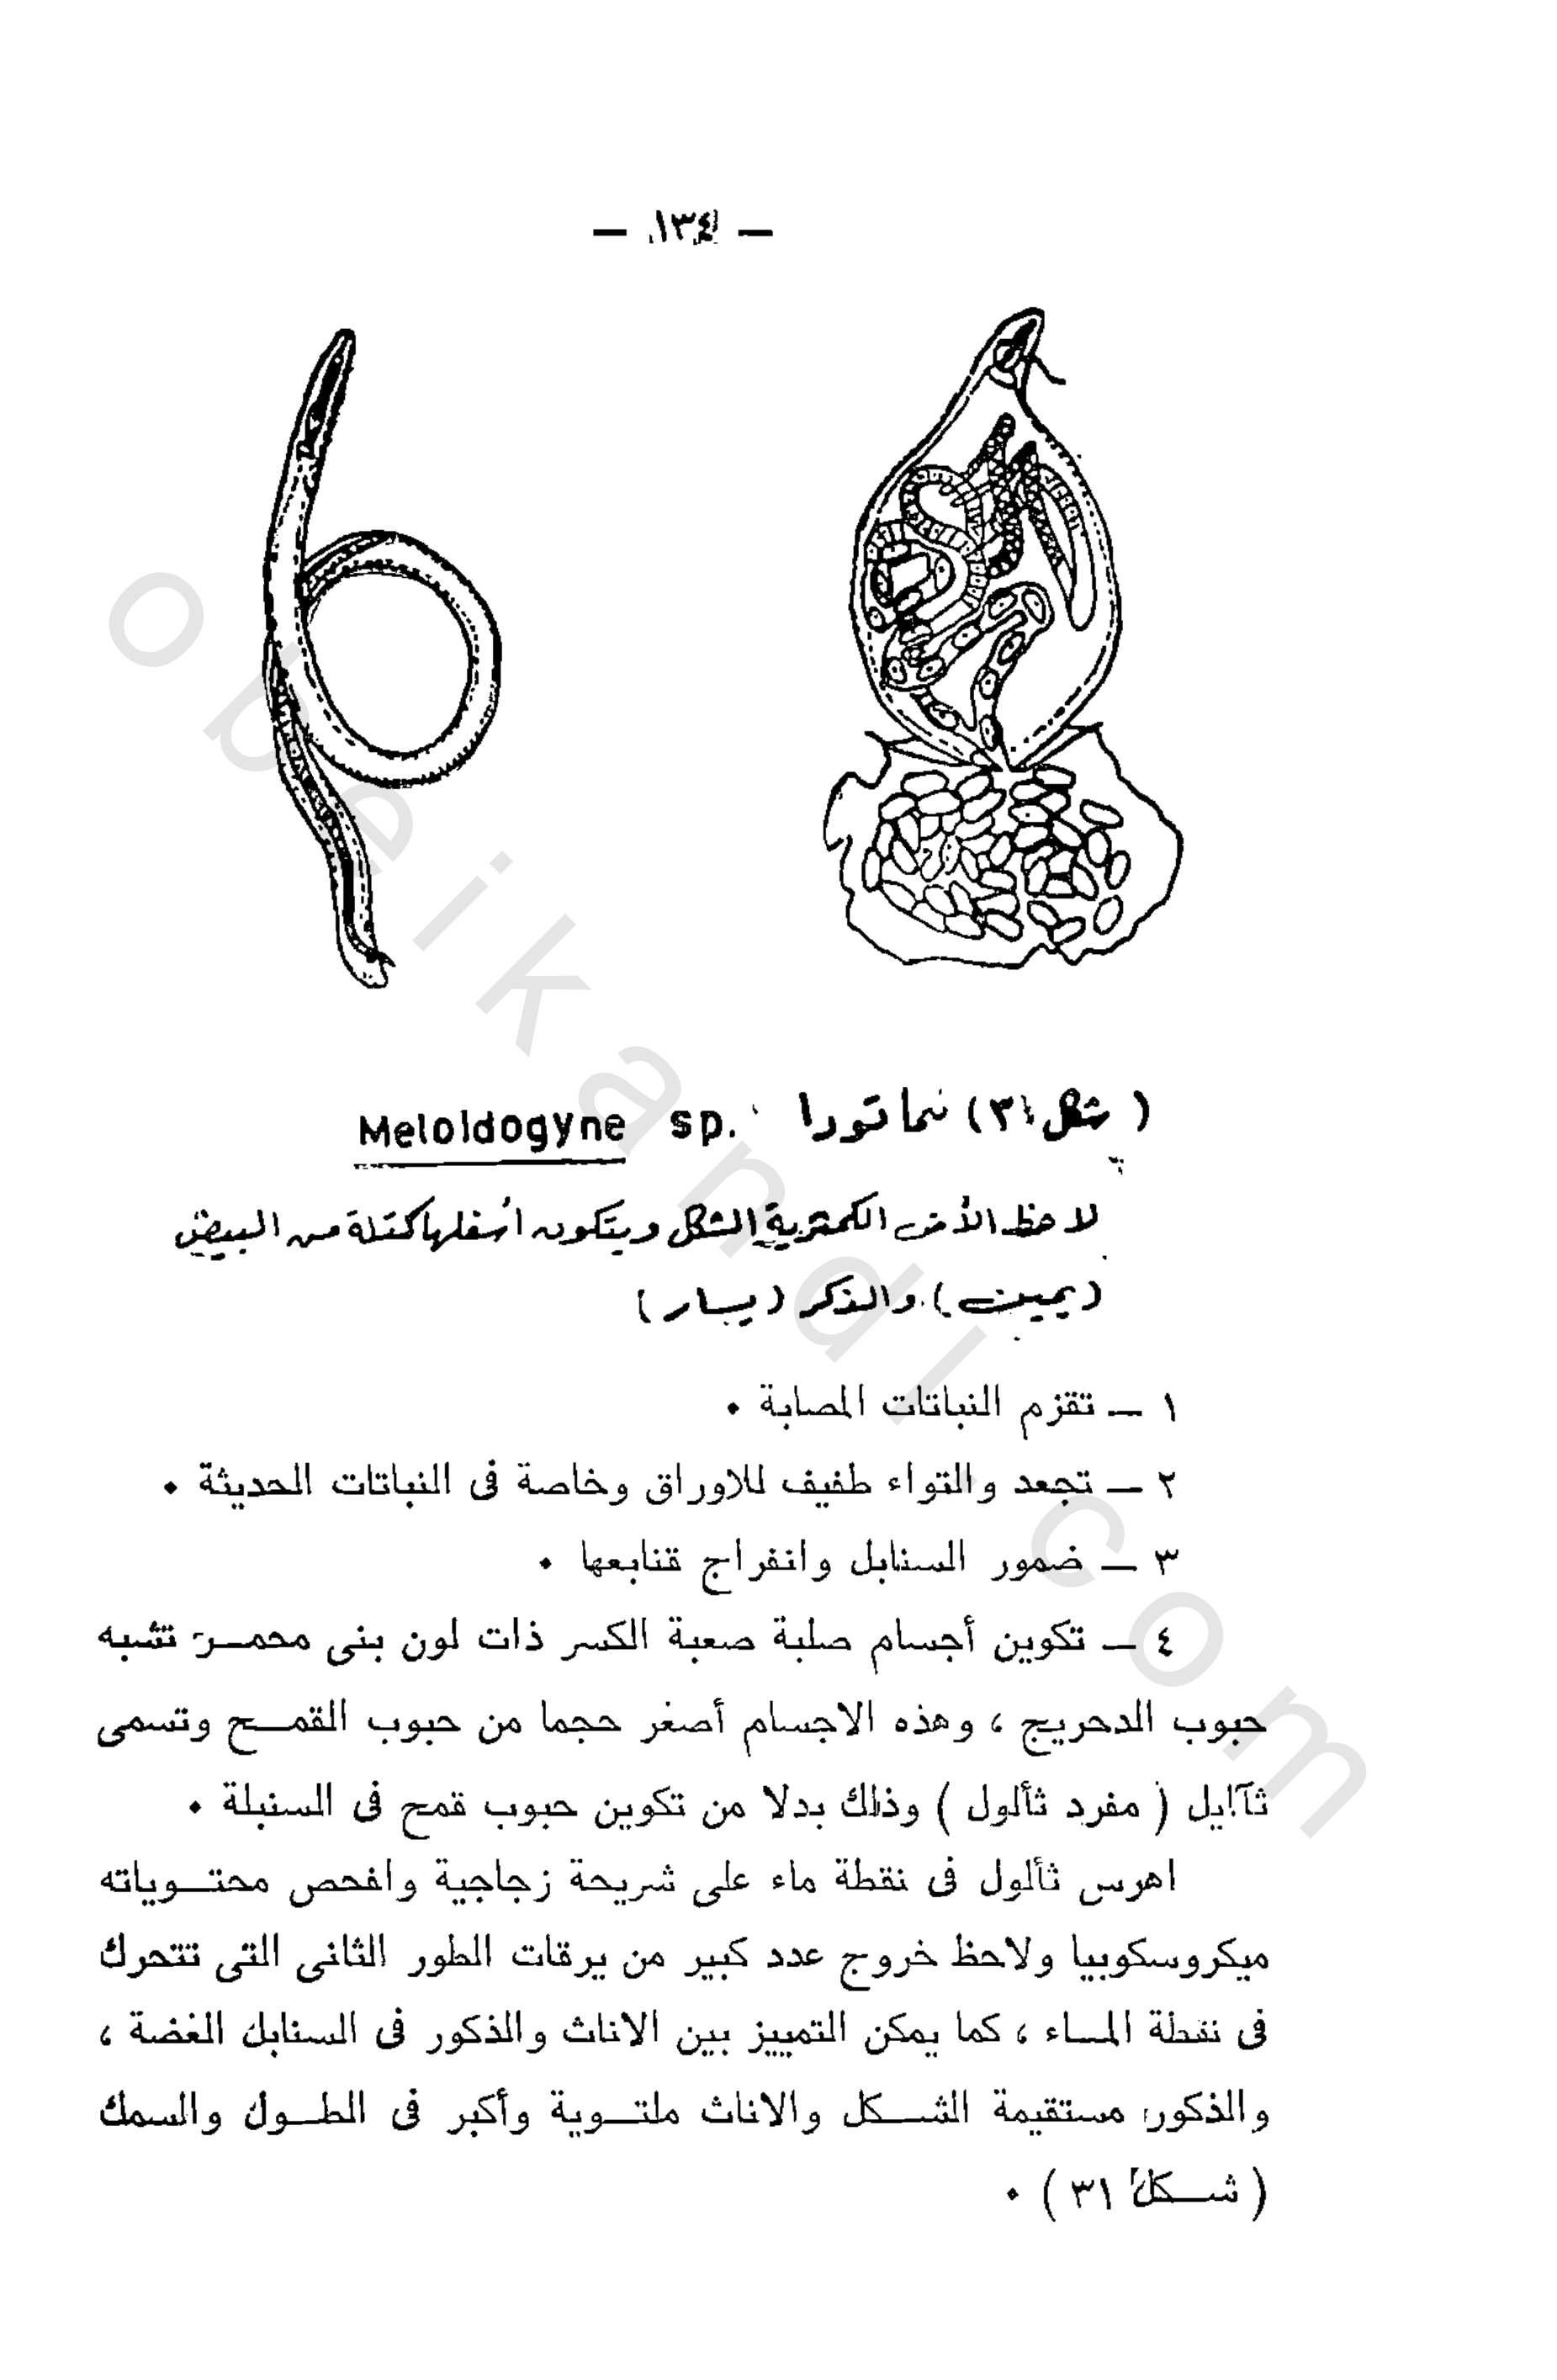 — ١٣٤ —
( شكل ٣١ ) نماتودا Meloldogyne sp.
لاحظ الأنثى الكمثرية الشكل ويتكون أسفلها كتلة من البيض
( يمين ) والذكر ( يسار )
١ — تقزم النباتات المصابة .
٢ — تجعد والتواء طفيف للاوراق وخاصة فى النباتات الحديثة .
٣ — ضمور السنابل وانفراج قنابعها .
٤ — تكوين أجسام صلبة صعبة الكسر ذات لون بنى محمر تشبه
حبوب الدحريج ، وهذه الاجسام أصغر حجما من حبوب القمح وتسمى
ثآليل ( مفرد ثألول ) وذلك بدلا من تكوين حبوب قمح فى السنبلة .
اهرس ثألول فى نقطة ماء على شريحة زجاجية وافحص محتوياته
ميكروسكوبيا ولاحظ خروج عدد كبير من يرقات الطور الثانى التى تتحرك
فى نقطة الماء ، كما يمكن التمييز بين الاناث والذكور فى السنابل الغضة ،
والذكور مستقيمة الشكل والاناث ملتوية وأكبر فى الطول والسمك
( شكل ٣١ ) .
obeikandl.com